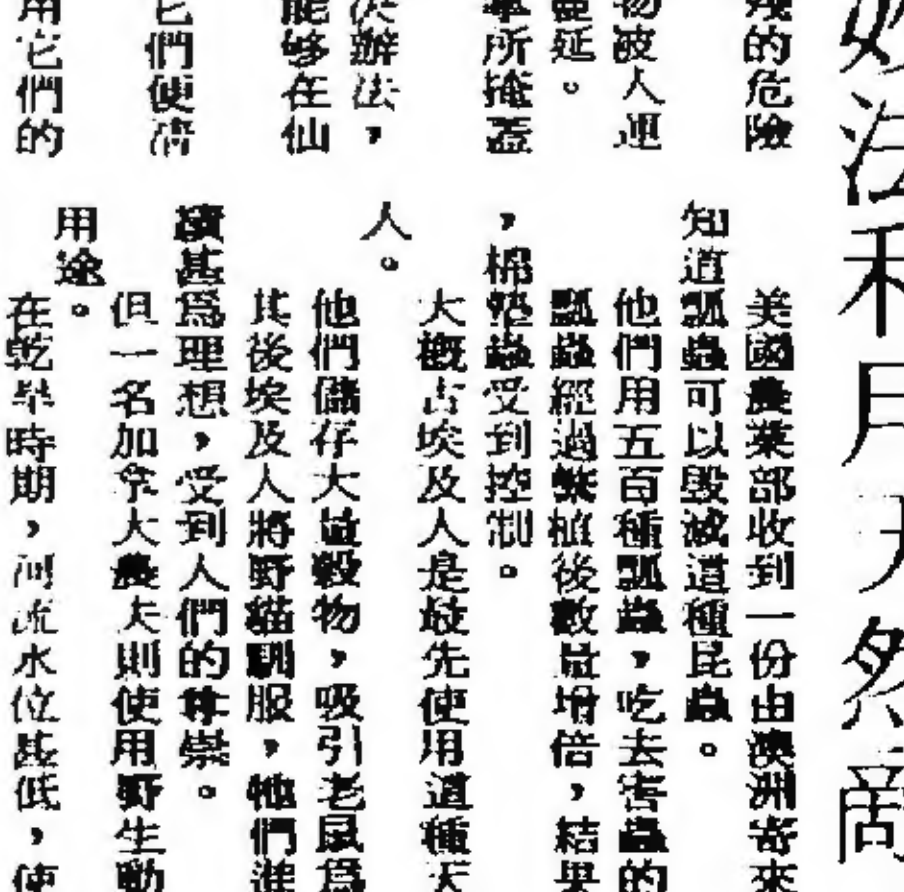 妙法利用天然
的危險
物被人運
蔓延。
所掩蓋
決辦法，
能够在仙
它們便
用它們的
美國農業部收到一份由澳洲寄來
知道瓢蟲可以毀滅這種昆蟲。
他們用五百種瓢蟲，吃去害蟲的
瓢蟲經過繁植後數量增倍，結果
，棉墊蟲受到控制。
大概古埃及人是最先使用這種天
人。
他們儲存大量穀物，吸引老鼠爲
其後埃及人將野貓馴服，牠們進
績甚爲理想，受到人們的尊崇。
但一名加拿大農夫則使用野生動
用途。
在乾旱時期，河流水位甚低，使